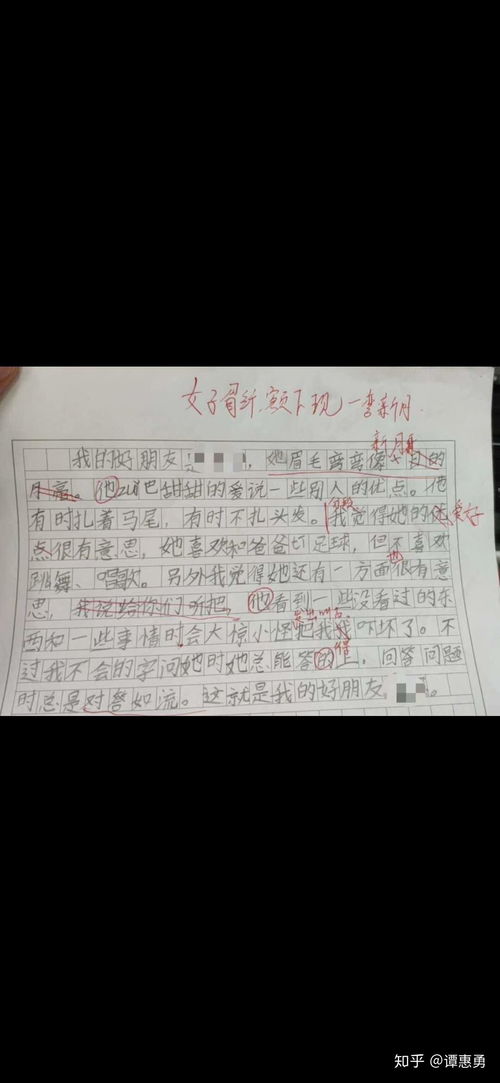 女子眉纤，额下现一弯新月．
新月
我的好朋友是，她眉毛弯弯像
月亮。他zuǐ巴甜甜的爱说一些别人的优点。他
有时扎着马尾，有时不扎头发。我觉得她的优爱好
点很有意思，她喜欢和爸爸叨足球，但不喜欢
也
跳舞、唱歌。另外我觉得她还有一方面很有意
思，我说给你们听把，他看到一些没看过的东
西和一些事情时会大惊小怪把我吓坏了。不
得
过我不会的字问她时她总能答的上，回答问题
时总是对答如流。这就是我的好朋友。
知乎 @谭惠勇